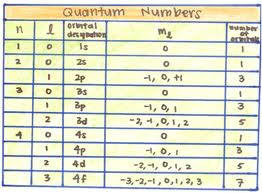 Quantum Numbers
n l orbital designation ml number of orbitals
1 0 1s 0 1
2 0 2s 0 1
1 2p -1, 0, +1 3
3 0 3s 0 1
1 3p -1, 0, 1 3
2 3d -2, -1, 0, 1, 2 5
4 0 4s 0 1
1 4p -1, 0, 1 3
2 4d -2, -1, 0, 1, 2 5
3 4f -3, -2, -1, 0, 1, 2, 3 7